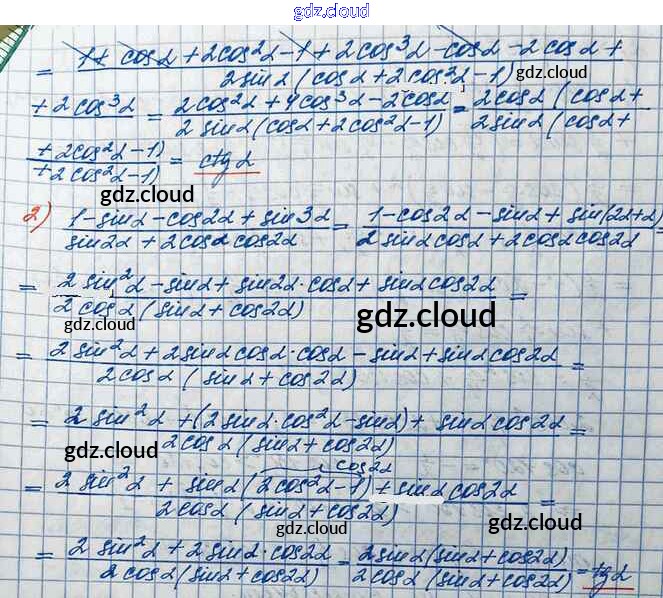 gdz.cloud
= (1 + cosα + 2cos²α - 1 + 2cos³α - cosα - 2cosα +) / (2sinα (cosα + 2cos²α - 1))
(+ 2cos³α) = (2cos²α + 4cos³α - 2cosα) / (2sinα (cosα + 2cos²α - 1)) = (2cosα (cosα +) / (2sinα (cosα +)
(+ 2cos²α - 1)) / (+ 2cos²α - 1)) = ctgα
gdz.cloud
gdz.cloud
gdz.cloud
2) (1 - sinα - cos2α + sin3α) / (sin2α + 2cosα cos2α) = (1 - cos2α - sinα + sin(2α+α)) / (2sinα cosα + 2cosα cos2α) =
= (2sin²α - sinα + sin2α · cosα + sinα cos2α) / (2cosα (sinα + cos2α)) =
gdz.cloud
gdz.cloud
= (2sin²α + 2sinα cosα · cosα - sinα + sinα cos2α) / (2cosα (sinα + cos2α)) =
= (2sin²α + (2sinα · cos²α - sinα) + sinα cos2α) / (2cosα (sinα + cos2α)) =
gdz.cloud
cos2α
= (2sin²α + sinα (2cos²α - 1) + sinα cos2α) / (2cosα (sinα + cos2α)) =
gdz.cloud
gdz.cloud
= (2sin²α + 2sinα · cos2α) / (2cosα (sinα + cos2α)) = (2sinα (sinα + cos2α)) / (2cosα (sinα + cos2α)) = tgα